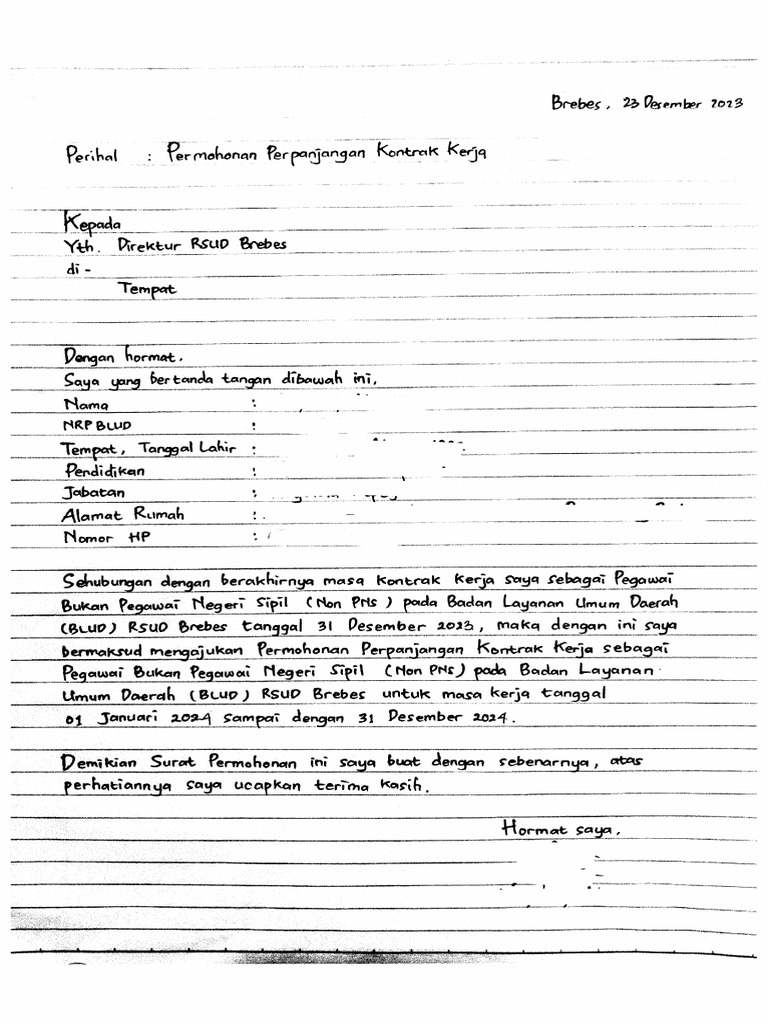 Brebes, 23 Desember 2023
Perihal : Permohonan Perpanjangan Kontrak Kerja
Kepada
Yth. Direktur RSUD Brebes
di -
Tempat
Dengan hormat.
Saya yang bertanda tangan dibawah ini,
Nama :
NRP BLUD :
Tempat, Tanggal Lahir :
Pendidikan :
Jabatan :
Alamat Rumah :
Nomor HP :
Sehubungan dengan berakhirnya masa Kontrak Kerja saya sebagai Pegawai
Bukan Pegawai Negeri Sipil (Non PNS) pada Badan Layanan Umum Daerah
(BLUD) RSUD Brebes tanggal 31 Desember 2023, maka dengan ini saya
bermaksud mengajukan Permohonan Perpanjangan Kontrak Kerja sebagai
Pegawai Bukan Pegawai Negeri Sipil (Non PNS) pada Badan Layanan
Umum Daerah (BLUD) RSUD Brebes untuk masa kerja tanggal
01 Januari 2024 sampai dengan 31 Desember 2024.
Demikian Surat Permohonan ini saya buat dengan sebenarnya, atas
perhatiannya saya ucapkan terima kasih.
Hormat saya,